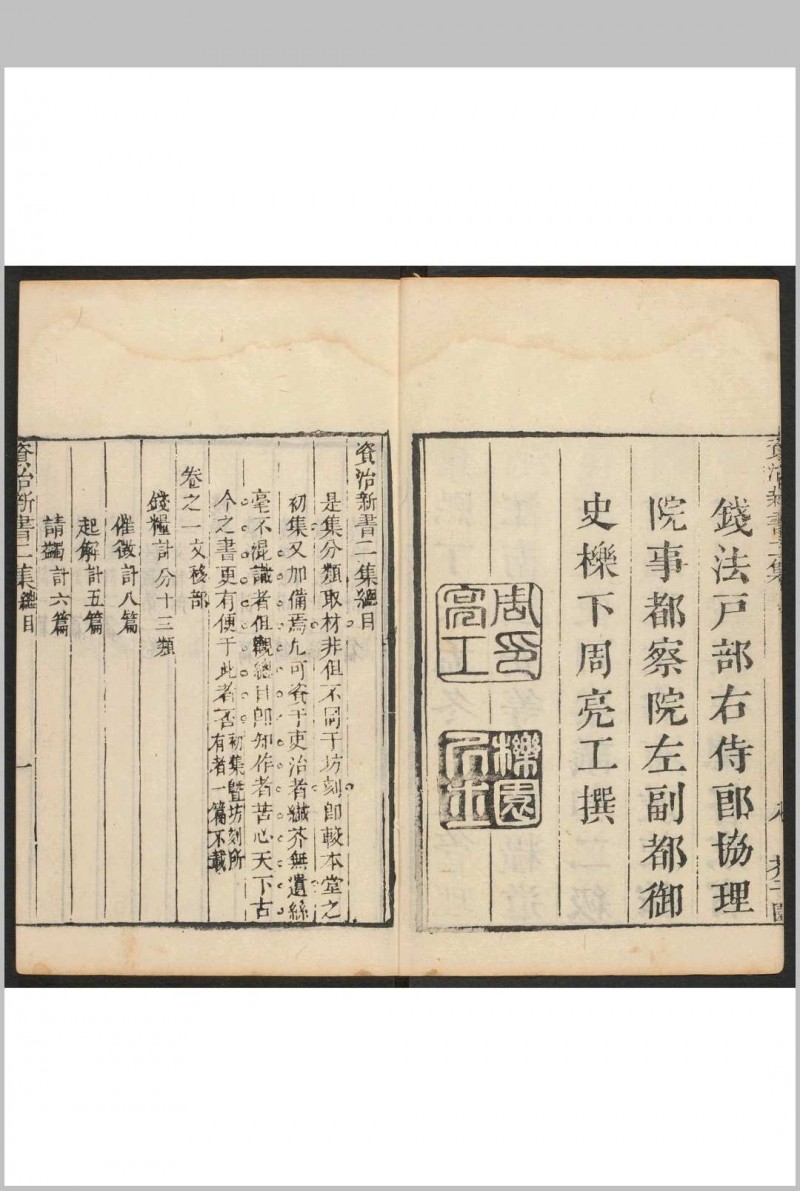 錢法戸部右侍郎協理
院事都察院左副都御
史櫟下周亮工撰
周亮工印
櫟園
資治新書二集總目
是集分類取材非但不同于坊刻卽較本堂之
初集又加備焉凢可資于吏治者纎芥無遺絲
毫不混識者但觀總目卽知作者苦心天下古
今之書更有便于此者否
初集曁坊刻所
有者一篇不載
卷之一文移部
錢糧計分十三類
催徵計八篇
起解計五篇
請蠲計六篇
資治新書二集總目
一